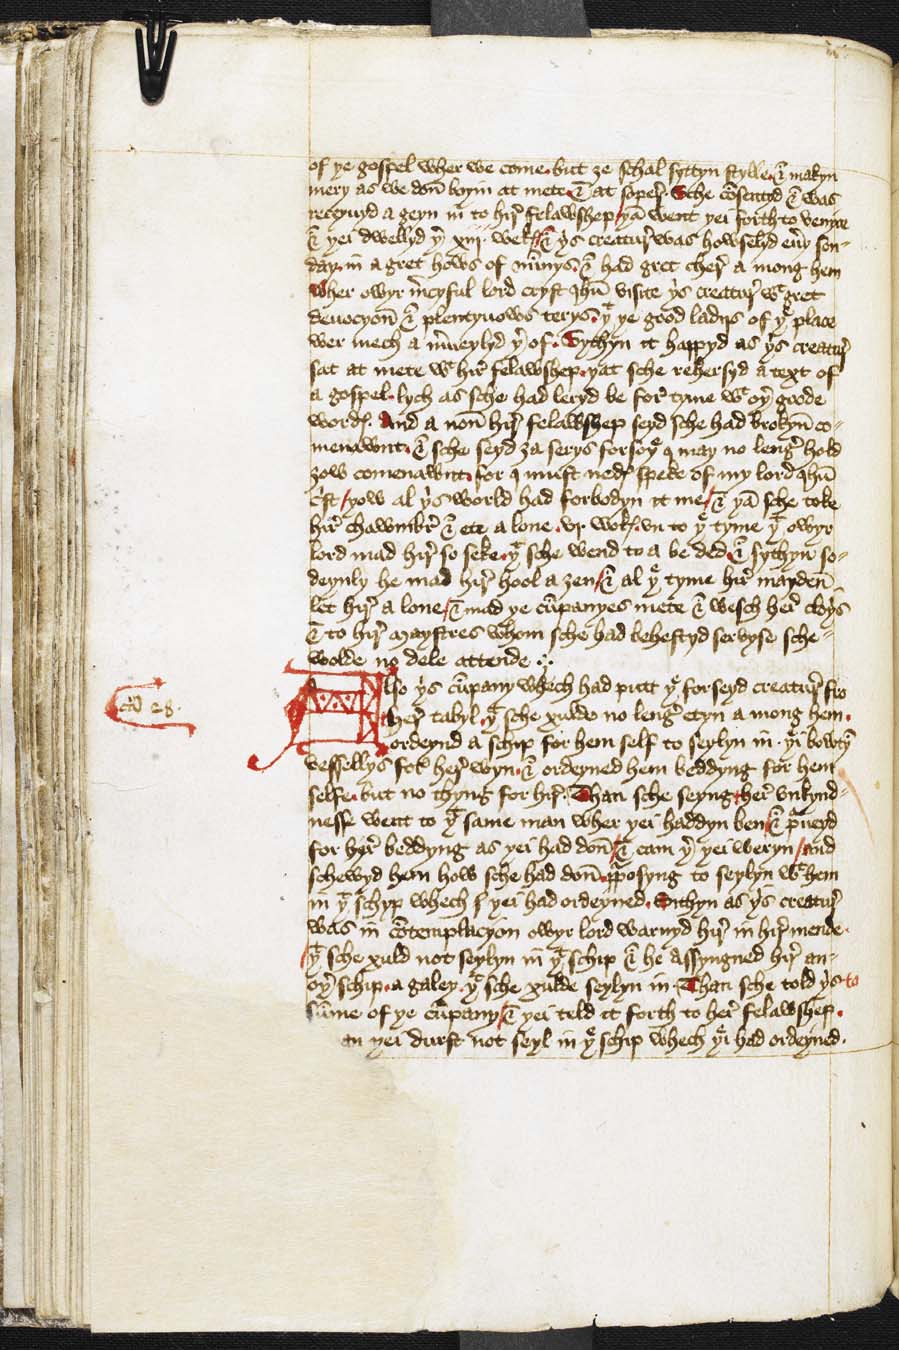 of ye gospel wher we come. but ze schal syttyn stylle. & makyn
mery as we don boyin at mete & at soper. Sche cōsentyd & was
receyuyd a geyn in to hir felawshep / yā went yei forth to venyce
& yei dwellyd yͬ xiij. wekˢ / & yˢ creatur was howselyd eūy son-
day. in a gret hows of nūnys. & had gret cher a mong hem
wher owyr m̄cyful lord cryst ihū visite yˢ creatur wͭ gret
deuocyon & plentyuows terys. yͭ ye good ladijs of yͭ place
wer mech a m̄ueylyd yͬ of. Sythyn it happyd as yˢ creatur
sat at mete wͭ hir felawshep. yat sche rehersyd a text of
a gospel. lych as sche had leryd be for tyme wͭ oyͬ goode
wordˢ. And a non hir felawshep seyd sche had brokyn co-
menawnt. & sche seyd za serys forsoyͤ I may no lenger hold
zow comenawnt. for I must nedˢ speke of my lord ihū
c̄st / yow al yˢ world had forbodyn it me / & yā sche toke
hir chawmbr & ete a lone. vj. wokˢ. vn to yͤ tyme yͭ owyr
lord mad hir so seke. yͭ sche wend to a be ded & sythyn so-
deynly he mad hir hool a zen / & al yͤ tyme hir mayden
let hir a lone / & mad ye cūpanyes mete & wesch her cloyˢ
& to hir maystres whom sche had behestyd seruyse sche-
wolde no dele attende
Cͫ 28.
Also yˢ cūpany whech had putt yͤ forseyd creatur fro
her tabyl. yͭ sche xulde no lenger etyn a mong hem.
ordeynd a schip for hem self to seylyn in. yͤi bowty
vessellys for her wyn. & ordeyned hem beddyng for hem
selfe. but no thyng for hir. Than sche seyng her vnkynd-
nesse went to yͤ same man wher yei haddyn ben / & p̄ueyd
for hyr beddyng as yei had don / & cam yͬ yei weryn / and
schewyd hem how sche had don. p̄posyng to seylyn wͭ hem
in yͭ schyp whech yei had ordeyned. Sithyn as yˢ creatur
was in cōtemplacyon owyr lord warnyd hir in hir mende.
yͭ sche xuld not seylyn in yͭ schip & he assyngned hir an-
oyͬ schip. a galey. yͭ sche xulde seylyn in. Than sche told yˢ to
sūme of ye cūpany / & yei teld it forth to her felawshep.
an yei durst not seyl in yͤ schip whech yͤi had ordeyned.